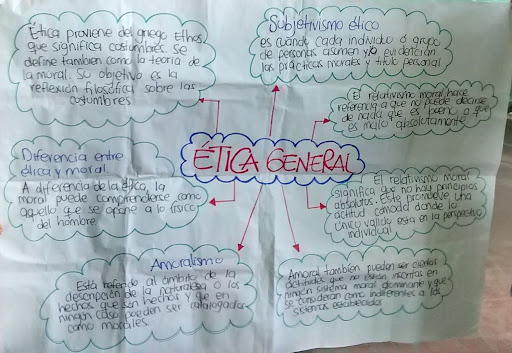 Ética proviene del griego Ethos,
que significa costumbres. Se
define tambien como la teoria de
la moral. Su objetivo es la
reflexión filosófica sobre las
costumbres
Subjetivismo ético
es cuando cada individuo o grupo
de personas asumen y/o evidencian
las prácticas morales y titulo personal
El relativismo moral hace
referencia a que no puede decirse
de nada que es bueno o que
es malo absolutamente
ÉTICA GENERAL
Diferencia entre
ética y moral.
A diferencia de la ética, la
moral puede comprenderse como
aquello que se opone a lo físico
del hombre
El relativismo moral
significa que no hay principios
absolutos. Este promueve una
actitud comoda donde lo
único valido esta en la perspectiva
individual
Amoralismo
Está referido al ámbito de la
descripción de la naturaleza o los
hechos que son hechos y que en
ningún caso pueden ser catalogados
como morales.
Amoral tambien pueden ser ciertas
actitudes que no están inscritas en
ningún sistema moral dominante y que
se consideran como indiferentes a los
sistemas establecidos